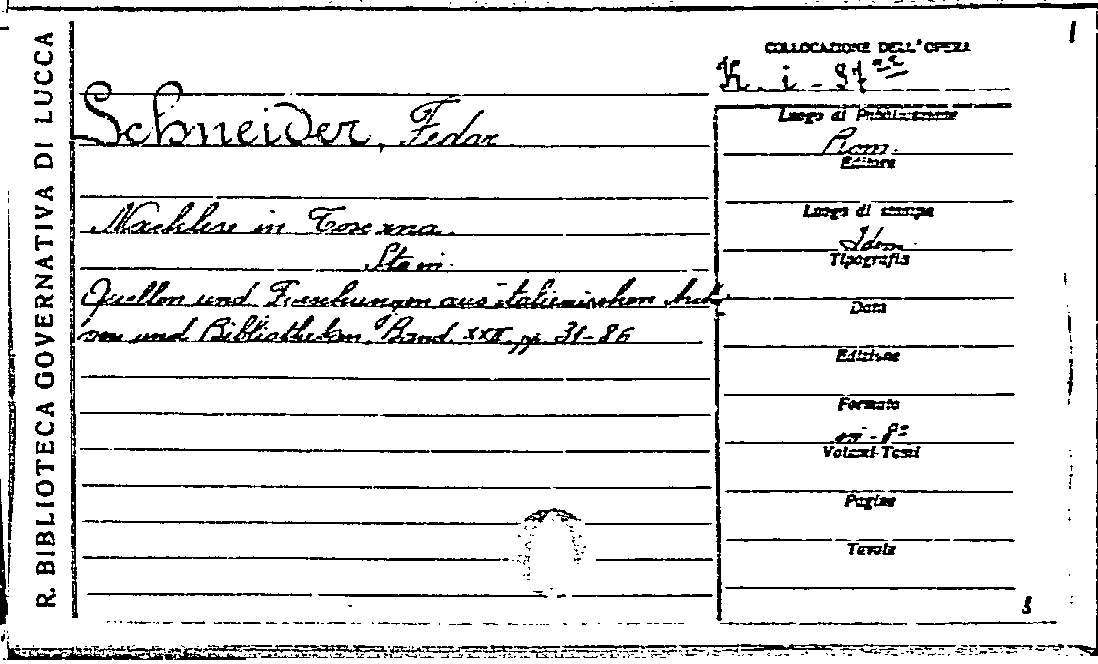 R. BIBLIOTECA GOVERNATIVA DI LUCCA
1
COLLOCAZIONE DELL'OPERA
K. i - 97
Schneider, Fedor
Luogo di Pubblicazione
Rom.
Editore
Nachlese in Toscana.
Luogo di stampa
Idem
Tipografia
Quellen und Forschungen aus italienischen Archi
ven und Bibliotheken. Band. XXII. pp. 31-86
Data
Edizione
Formato
in - 8°
Volumi-Tomi
Pagine
Tavole